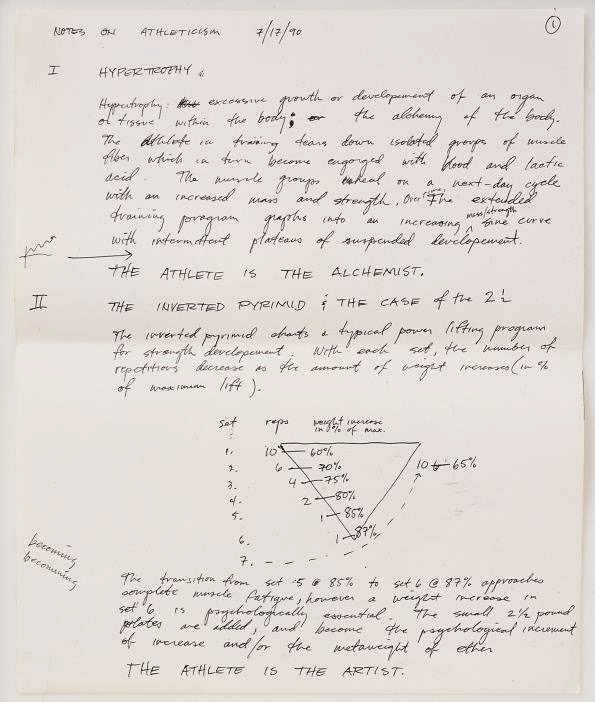 NOTES ON ATHLETICISM 7/17/90
1
I HYPERTROPHY.
Hypertrophy: excessive growth or developement of an organ
or tissue within the body; or the alchemy of the body.
The athlete in training tears down isolated groups of muscle
fiber which in turn become engorged with blood and lactic
acid. The muscle groups heal on a next-day cycle
with an increased mass and strength. Over time, The extended
training program graphs into an increasing mass/strength sine curve
with intermittent plateaus of suspended developement.
THE ATHLETE IS THE ALCHEMIST.
II THE INVERTED PYRIMID & THE CASE of the 2½
The inverted pyrimid charts a typical power lifting program
for strength developement. With each set, the number of
repetitions decrease as the amount of weight increases (in %
of maximum lift).
set reps weight increase
in % of max.
1. 10 60%
2. 6 70% 10 65%
3. 4 75%
4. 2 80%
5. 1 85%
6. 1 87%
7.
becoming
becomming
The transition from set 5 @ 85% to set 6 @ 87% approaches
complete muscle fatigue, however a weight increase in
set 6 is psychologically essential. The small 2½ pound
plates are added, and become the psychological increment
of increase and/or the metaweight of ether
THE ATHLETE IS THE ARTIST.